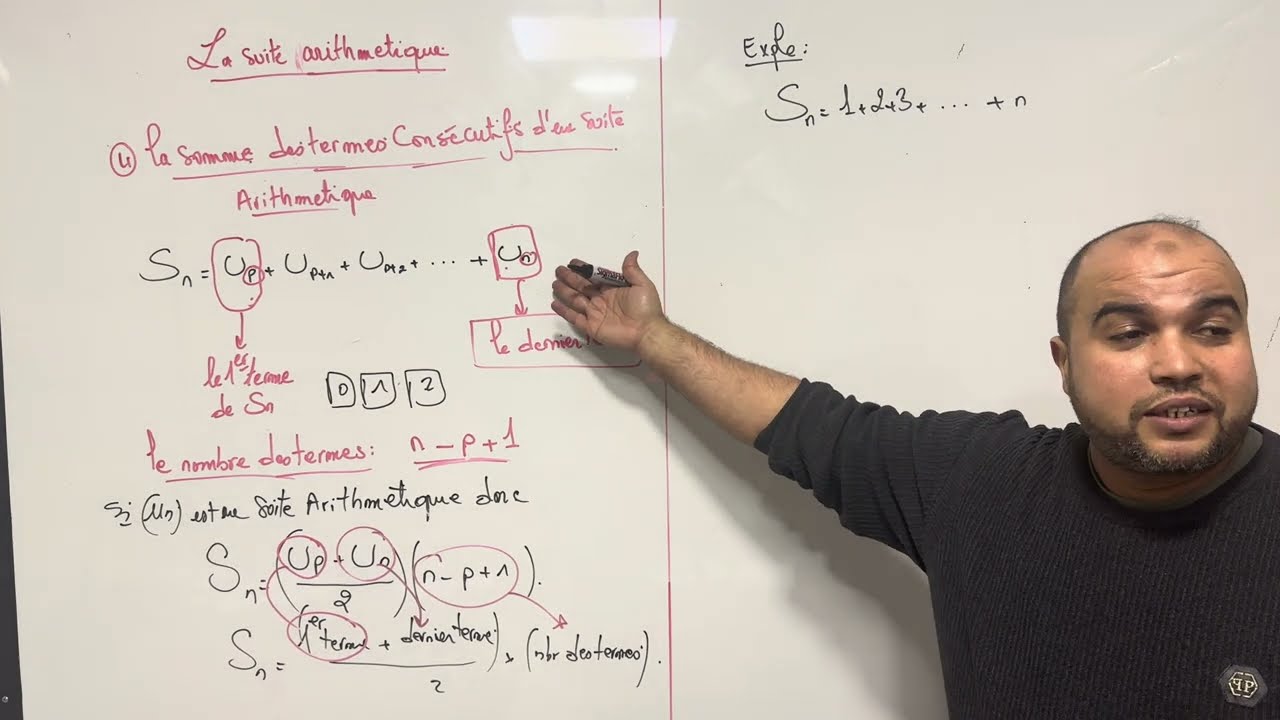 La suite arithmetique
4 la somme des termes Consécutifs d'une suite
Arithmetique
Sn = Up + Up+1 + Up+2 + ... + Un
le 1er terme
de Sn
le dernier
0 1 2
le nombre des termes: n - p + 1
Si (Un) est une suite Arithmétique donc
Sn = ((Up + Un)/2)(n - p + 1).
Sn = (1er terme + dernier terme)/2 × (nbr des termes).
Exple:
Sn = 1+2+3+ ... + n